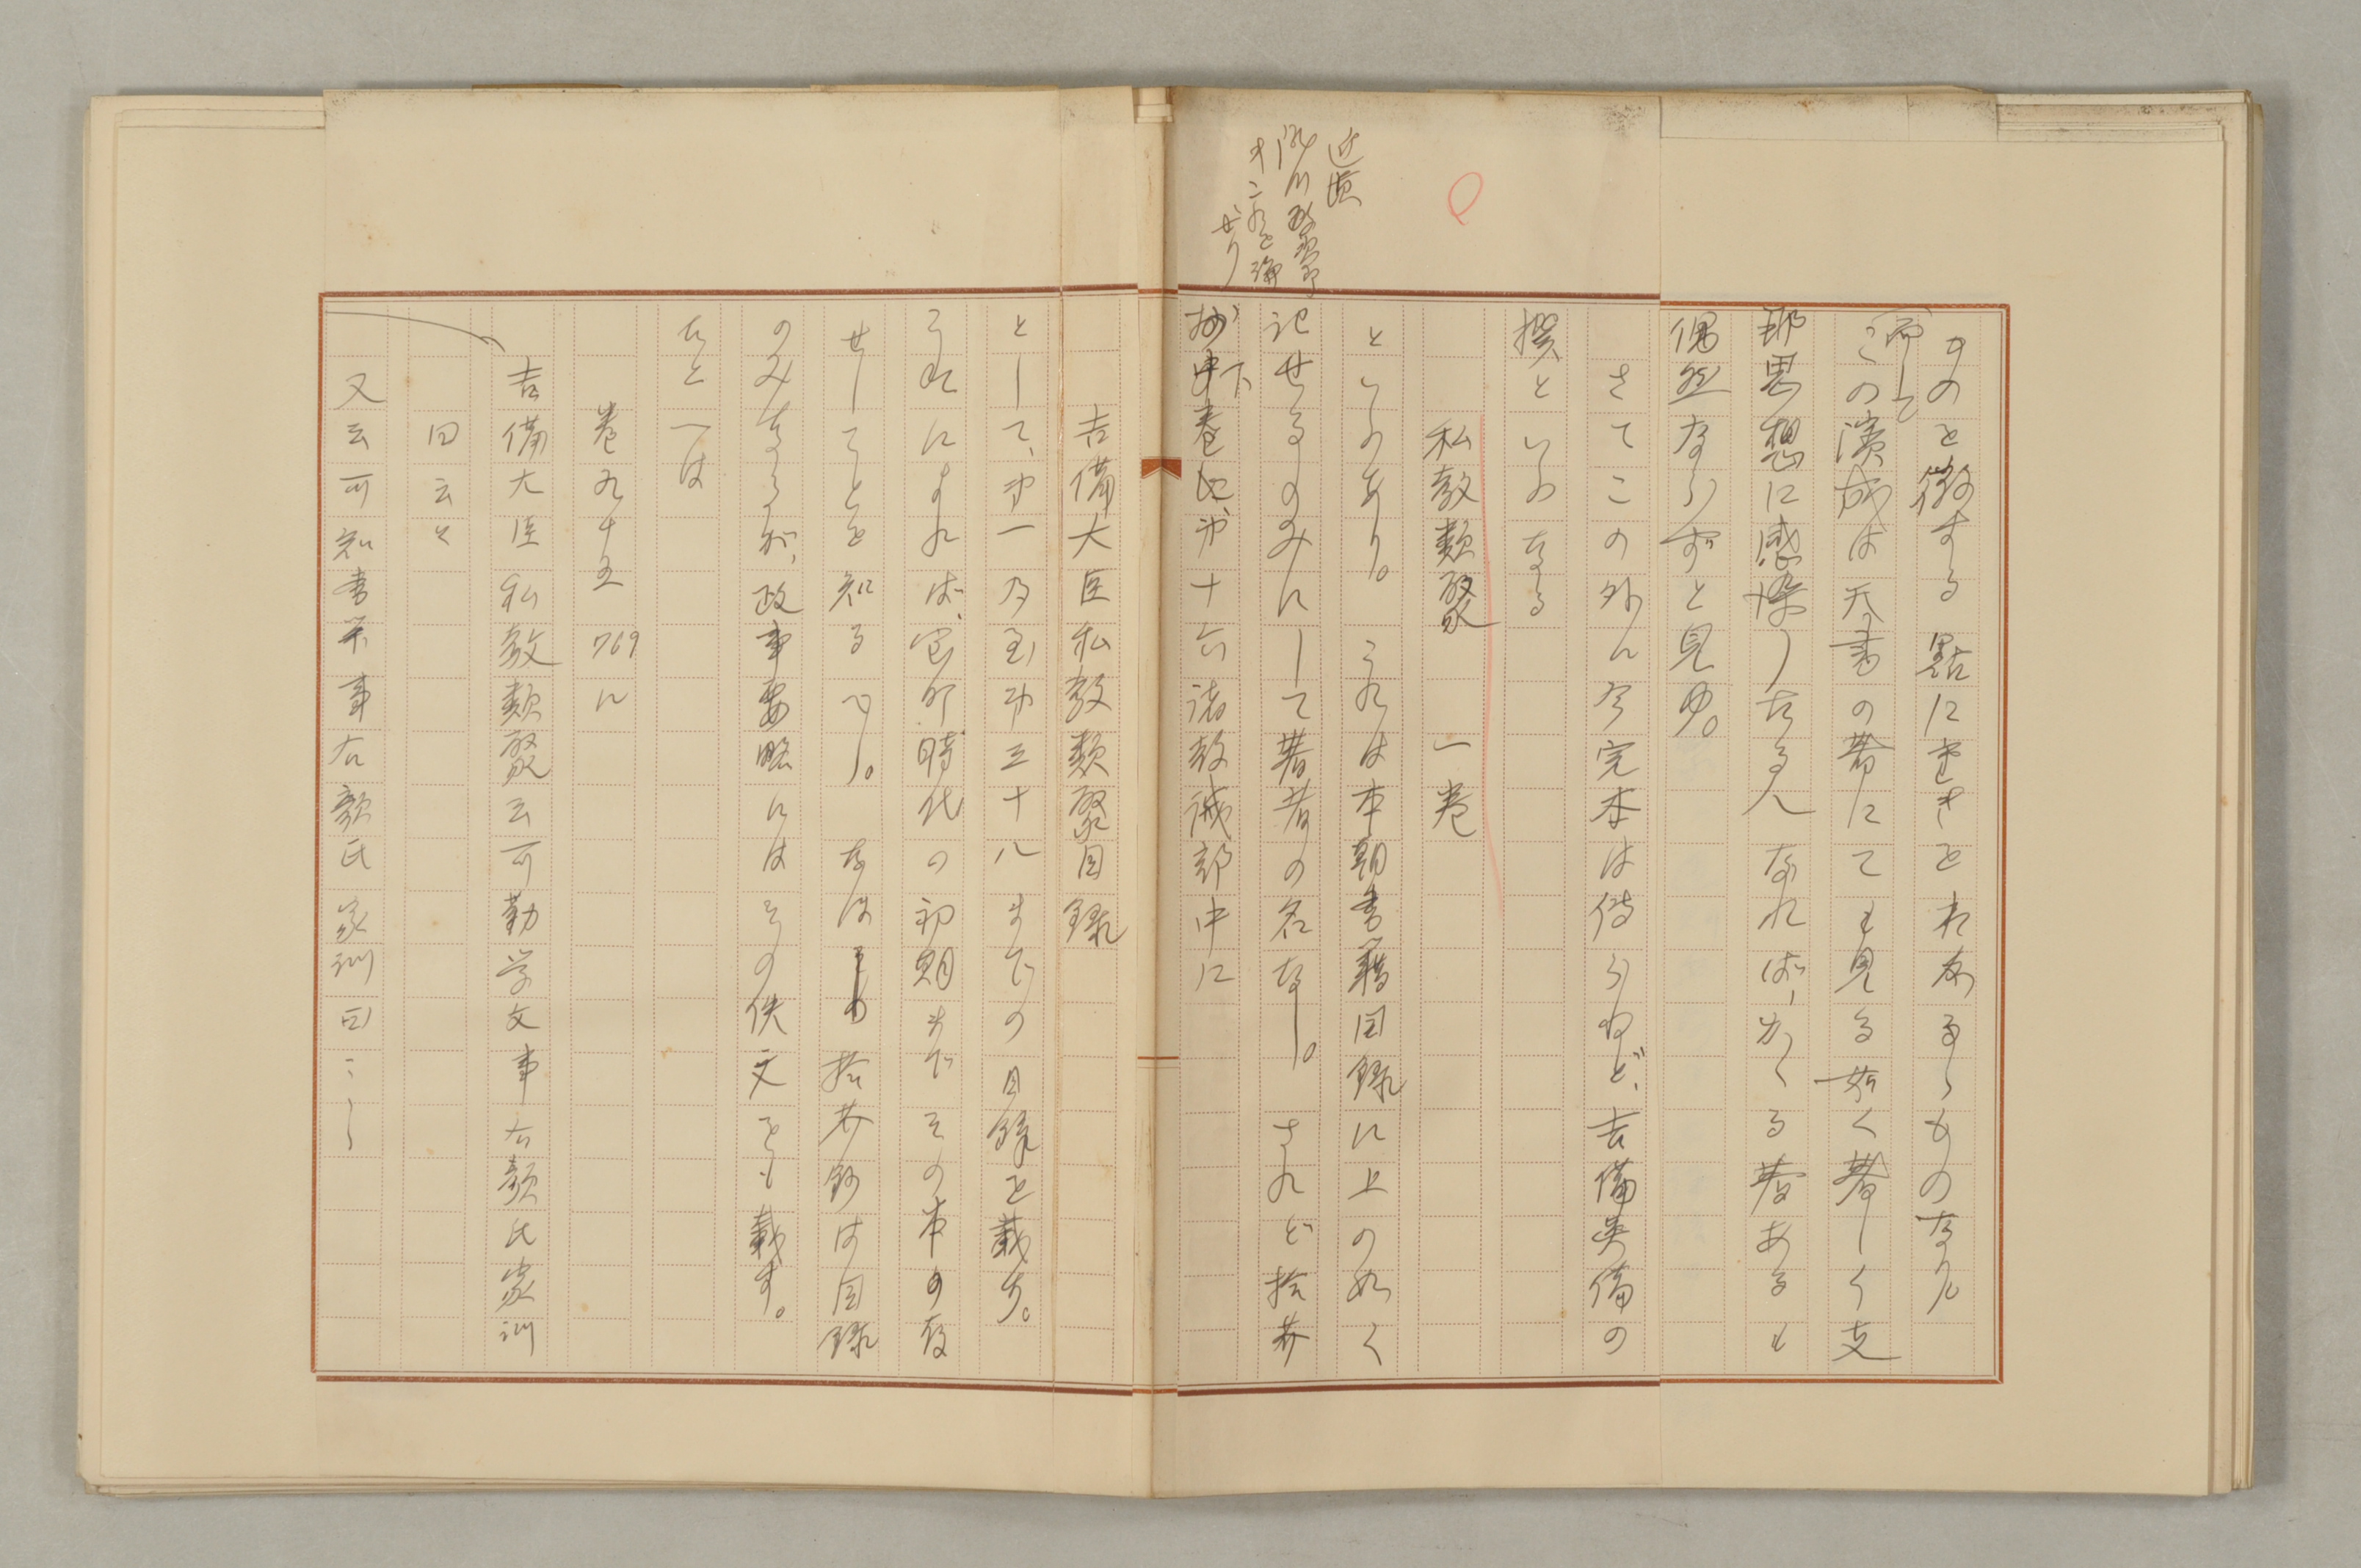 ものを徴する點に重きをおきたるものなり
而して
この演成は天書の著にても見る如く著しく支
那思想に感染したる人なれば、かくる著あるも
偶然ならずと見ゆ。
さてこの外に今完本は傳らねど、吉備真備の
撰といふなる
私教類聚 一巻
といふあり。これは本朝書籍目録に上の如く
記せるのみにして著者の名なし。されど拾芥
抄下巻に、第十六諸教誡部中に
近頃
瀧川政次郎
これを
せり
吉備大臣私教類聚目録
として、第一乃至第三十八までの目録を載す。
これによれば、室町時代の初期までその本の存
せしことを知るべし。なほ拾芥抄は目録
のみなるが、政事要略にはその佚文をも載す。
たとへば
巻九十五 769に
吉備大臣私教類聚云可勤学文事右顔氏家訓
曰云々
又云可知書算事右顔氏家訓曰云々